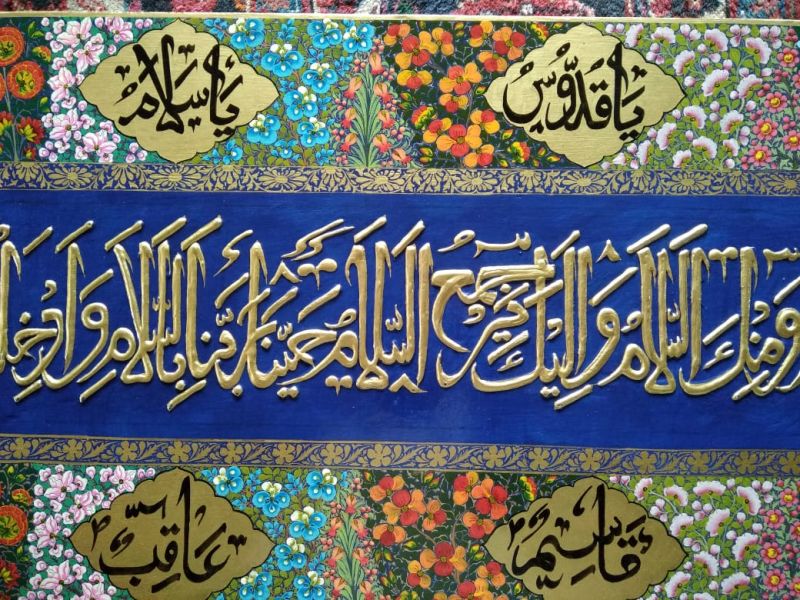 يَا قُدُّوسُ
يَا سَلَامُ
وَمِنْكَ السَّلَامُ وَاِلَيْكَ يَرْجِعُ السَّلَامُ حَيِّنَا رَبَّنَا بِالسَّلَامِ وَاَدْخِلْ
قَاسِمٌ
عَاقِبٌ